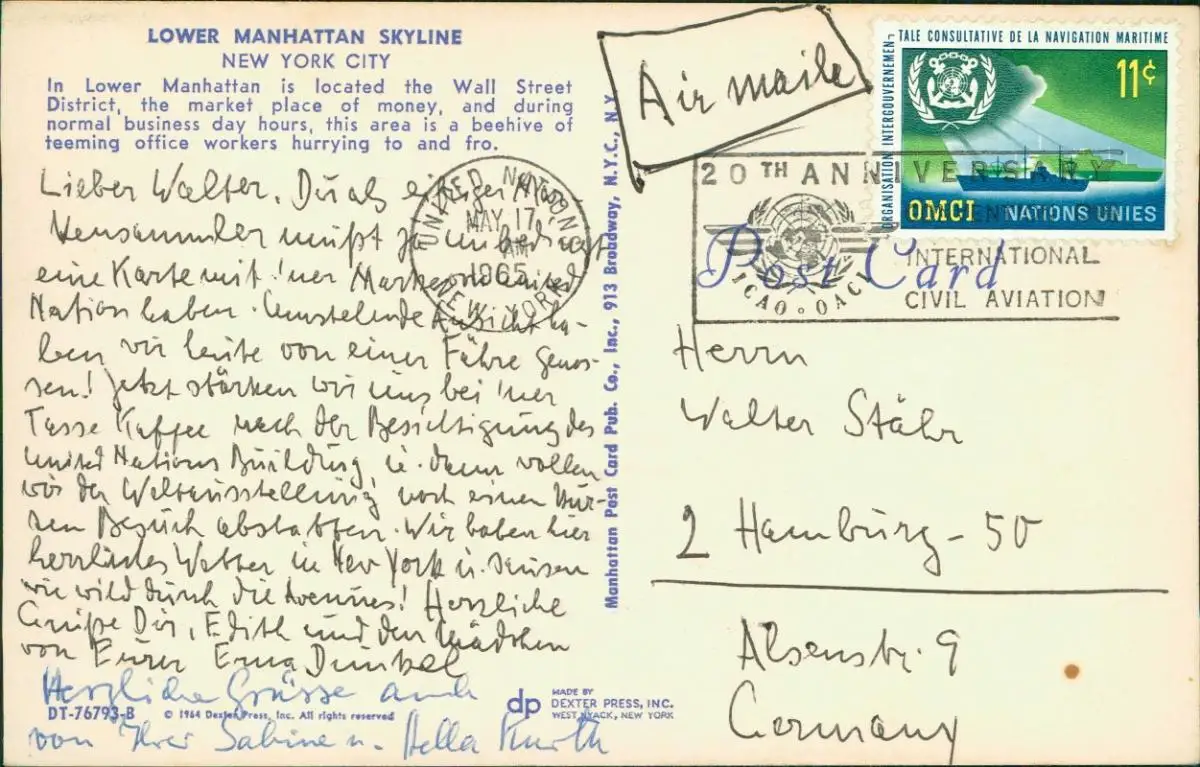 LOWER MANHATTAN SKYLINE
NEW YORK CITY
In Lower Manhattan is located the Wall Street
District, the market place of money, and during
normal business day hours, this area is a beehive of
teeming office workers hurrying to and fro.
Lieber Walter, Du als einziger Mar-
kensammler mußt ja unbedingt
eine Karte mit 'ner Marke United
Nation haben. Umstehende Ansicht ha-
ben wir heute von einer Fähre genos-
sen! Jetzt stärken wir uns bei 'ner
Tasse Kaffee nach der Besichtigung des
United Nations Building u. dann wollen
wir der Weltausstellung noch einen kur-
zen Besuch abstatten. Wir haben hier
herrliches Wetter in New York u. sausen
wie wild durch die Avenues! Herzliche
Grüße Dir, Edith und den Mädchen
von Eurer Erna Dunkel
Herzliche Grüsse auch
von Ihrer Sabine u. Hella Kurth
DT-76793-B © 1964 Dexter Press, Inc. All rights reserved
dp
MADE BY
DEXTER PRESS, INC.
WEST NYACK, NEW YORK
Manhattan Post Card Pub. Co., Inc., 913 Broadway, N.Y.C., N.Y.
UNITED NATIONS
MAY 17
AM
1965
NEW YORK
Air maile
ORGANISATION INTERGOUVERNEMEN-
TALE CONSULTATIVE DE LA NAVIGATION MARITIME
11¢
OMCI NATIONS UNIES
20TH ANNIVERSARY
INTERNATIONAL
CIVIL AVIATION
ICAO · OACI
Post Card
Herrn
Walter Stähr
2 Hamburg - 50
Alsenstr. 9
Germany